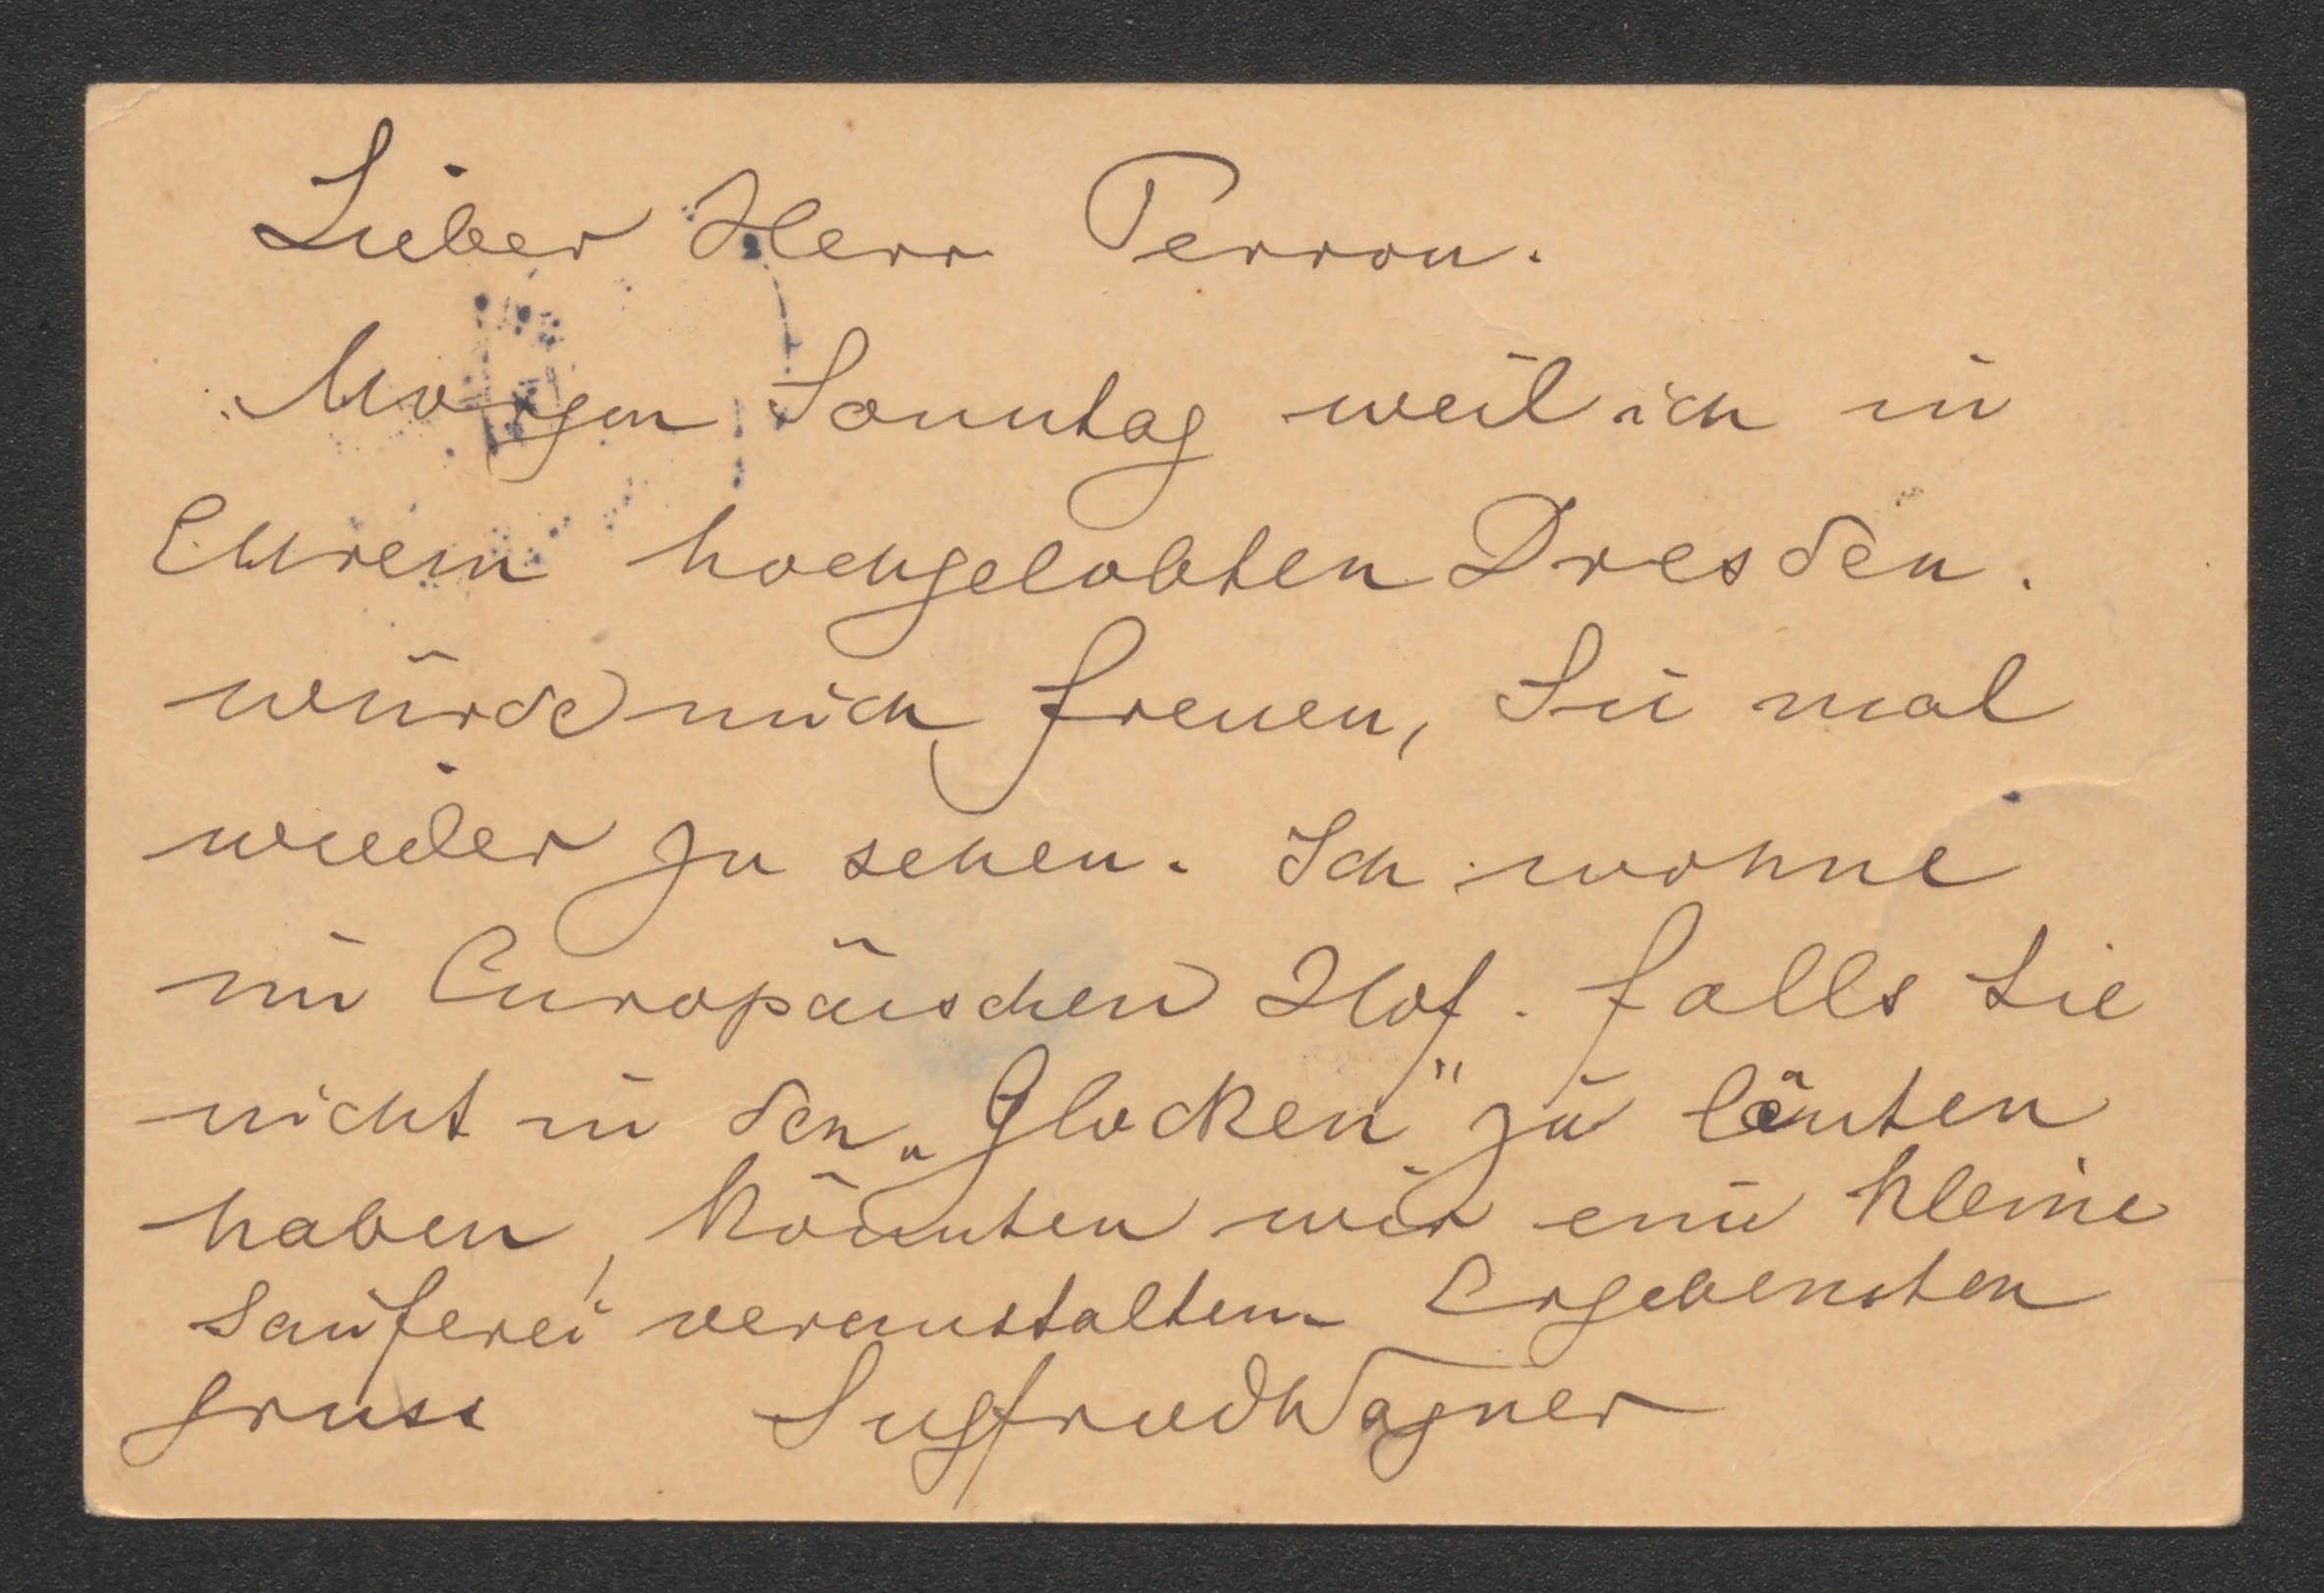 Lieber Herr Perron.
Morgen Sonntag weil ich in
Ehrem hochgelobten Dresden.
würde mich freuen, Sie mal
wieder zu sehen. Ich wohne
im Europäischen Hof. falls Sie
nicht in den „Glocken" zu läuten
haben, könnten wir eine kleine
Sauferei veranstalten. Ergebensten
Gruss Siegfried Wagner